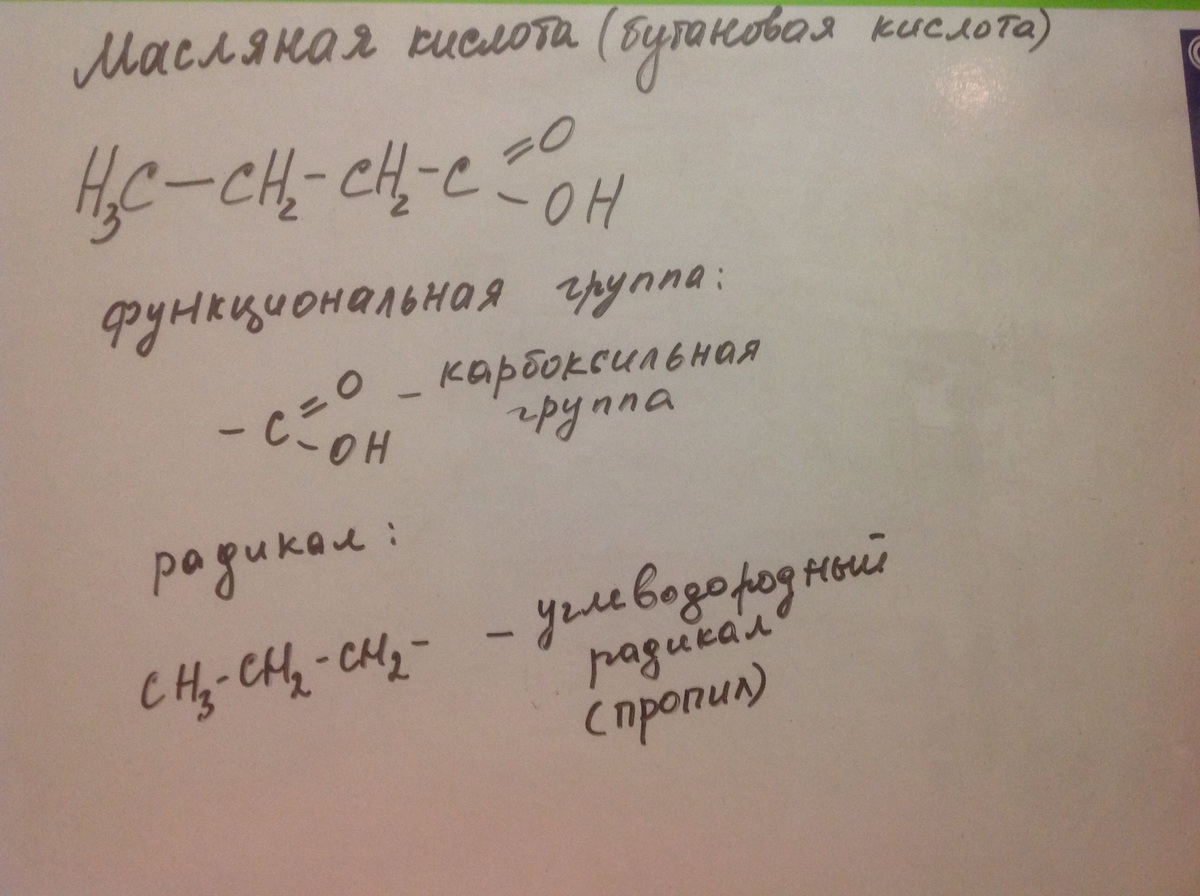 Масляная кислота (бутановая кислота)
H₃C — CH₂ - CH₂ - C =O
- OH
функциональная группа:
- C =O - карбоксильная
- OH группа
радикал:
CH₃ - CH₂ - CH₂ - - углеводородный
радикал
(пропил)